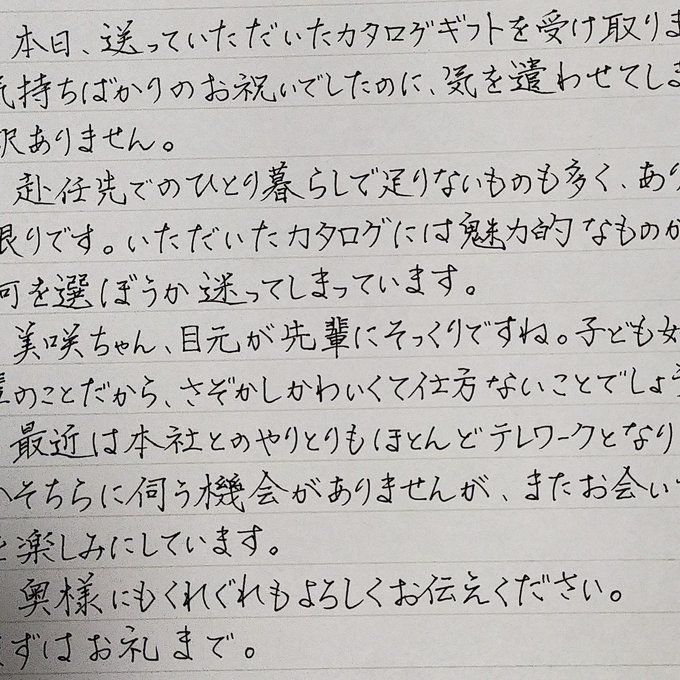 本日、送っていただいたカタログギフトを受け取りま
気持ちばかりのお祝いでしたのに、気を遣わせてしま
訳ありません。
赴任先でのひとり暮らしで足りないものも多く、あり
限りです。いただいたカタログには魅力的なものが
何を選ぼうか迷ってしまっています。
美咲ちゃん、目元が先輩にそっくりですね。子ども女
輩のことだから、さぞかしかわいくて仕方ないことでしょう
最近は本社とのやりとりもほとんどテレワークとなり
かそちらに伺う機会がありませんが、またお会い
を楽しみにしています。
奥様にもくれぐれもよろしくお伝えください。
まずはお礼まで。